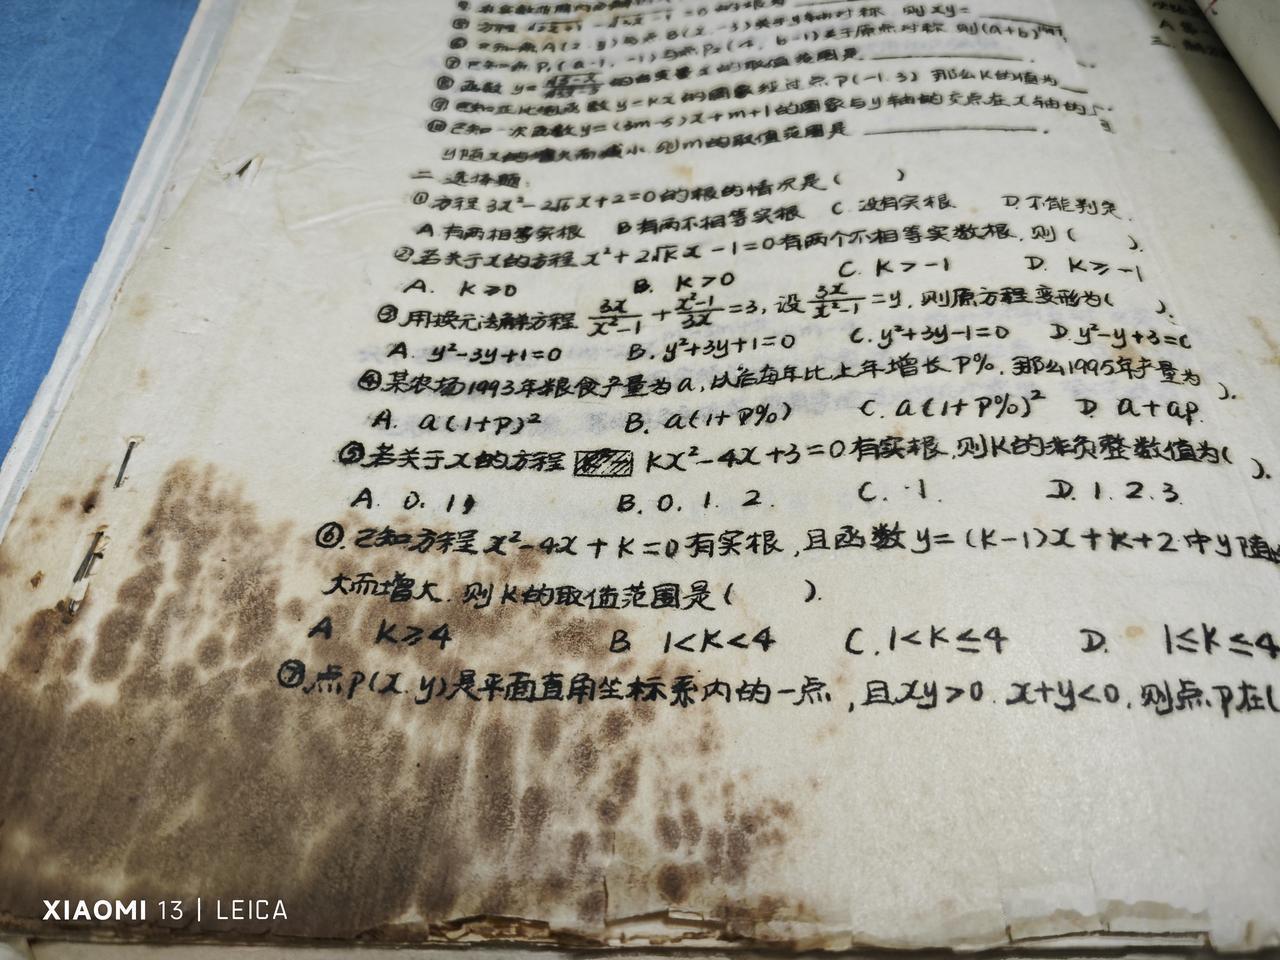 ⑤ 方程
⑥ 已知点A(2, y)与点B(x, -3)关于y轴对称, 则xy=
⑦ 已知点P₁(a-1, -1)与点P₂(4, b-1)关于原点对称, 则(a+b)
⑧ 函数 y= 的自变量x的取值范围是
⑨ 已知正比例函数y=kx的图象经过点P(-1.3) 那么K的值为
⑩ 已知一次函数y=(3m-5)x+m+1的图象与y轴的交点在x轴的
y随x的增大而减小.则m的取值范围是 .
二 选择题:
①方程3x²-2√6x+2=0的根的情况是( )
A 有两相等实根 B 有两不相等实根 C. 没有实根 D.不能判定.
②若关于x的方程x²+2√kx-1=0有两个不相等实数根,则( ).
A. K≥0 B. K>0 C. K>-1 D. K≥-1
③用换元法解方程 3x/x²-1 + x²-1/3x =3, 设 3x/x²-1 =y, 则原方程变形为( ).
A. y²-3y+1=0 B. y²+3y+1=0 C. y²+3y-1=0 D. y²-y+3=0
④某农场1993年粮食产量为a, 以后每年比上年增长P%, 那么1995年产量为( ).
A. a(1+P)² B. a(1+P%) C. a(1+P%)² D a+ap.
⑤若关于x的方程 kx²-4x+3=0有实根,则K的非负整数值为( ).
A. 0. 1, B. 0. 1. 2. C. 1. D. 1. 2. 3.
⑥.已知方程x²-4x+K=0有实根,且函数y=(K-1)x+K+2中y随
大而增大.则K的取值范围是( ).
A K≥4 B 1<K<4 C. 1<K≤4 D. 1≤K≤4
⑦.点P(x.y)是平面直角坐标系内的一点,且xy>0. x+y<0.则点P在(
XIAOMI 13 | LEICA